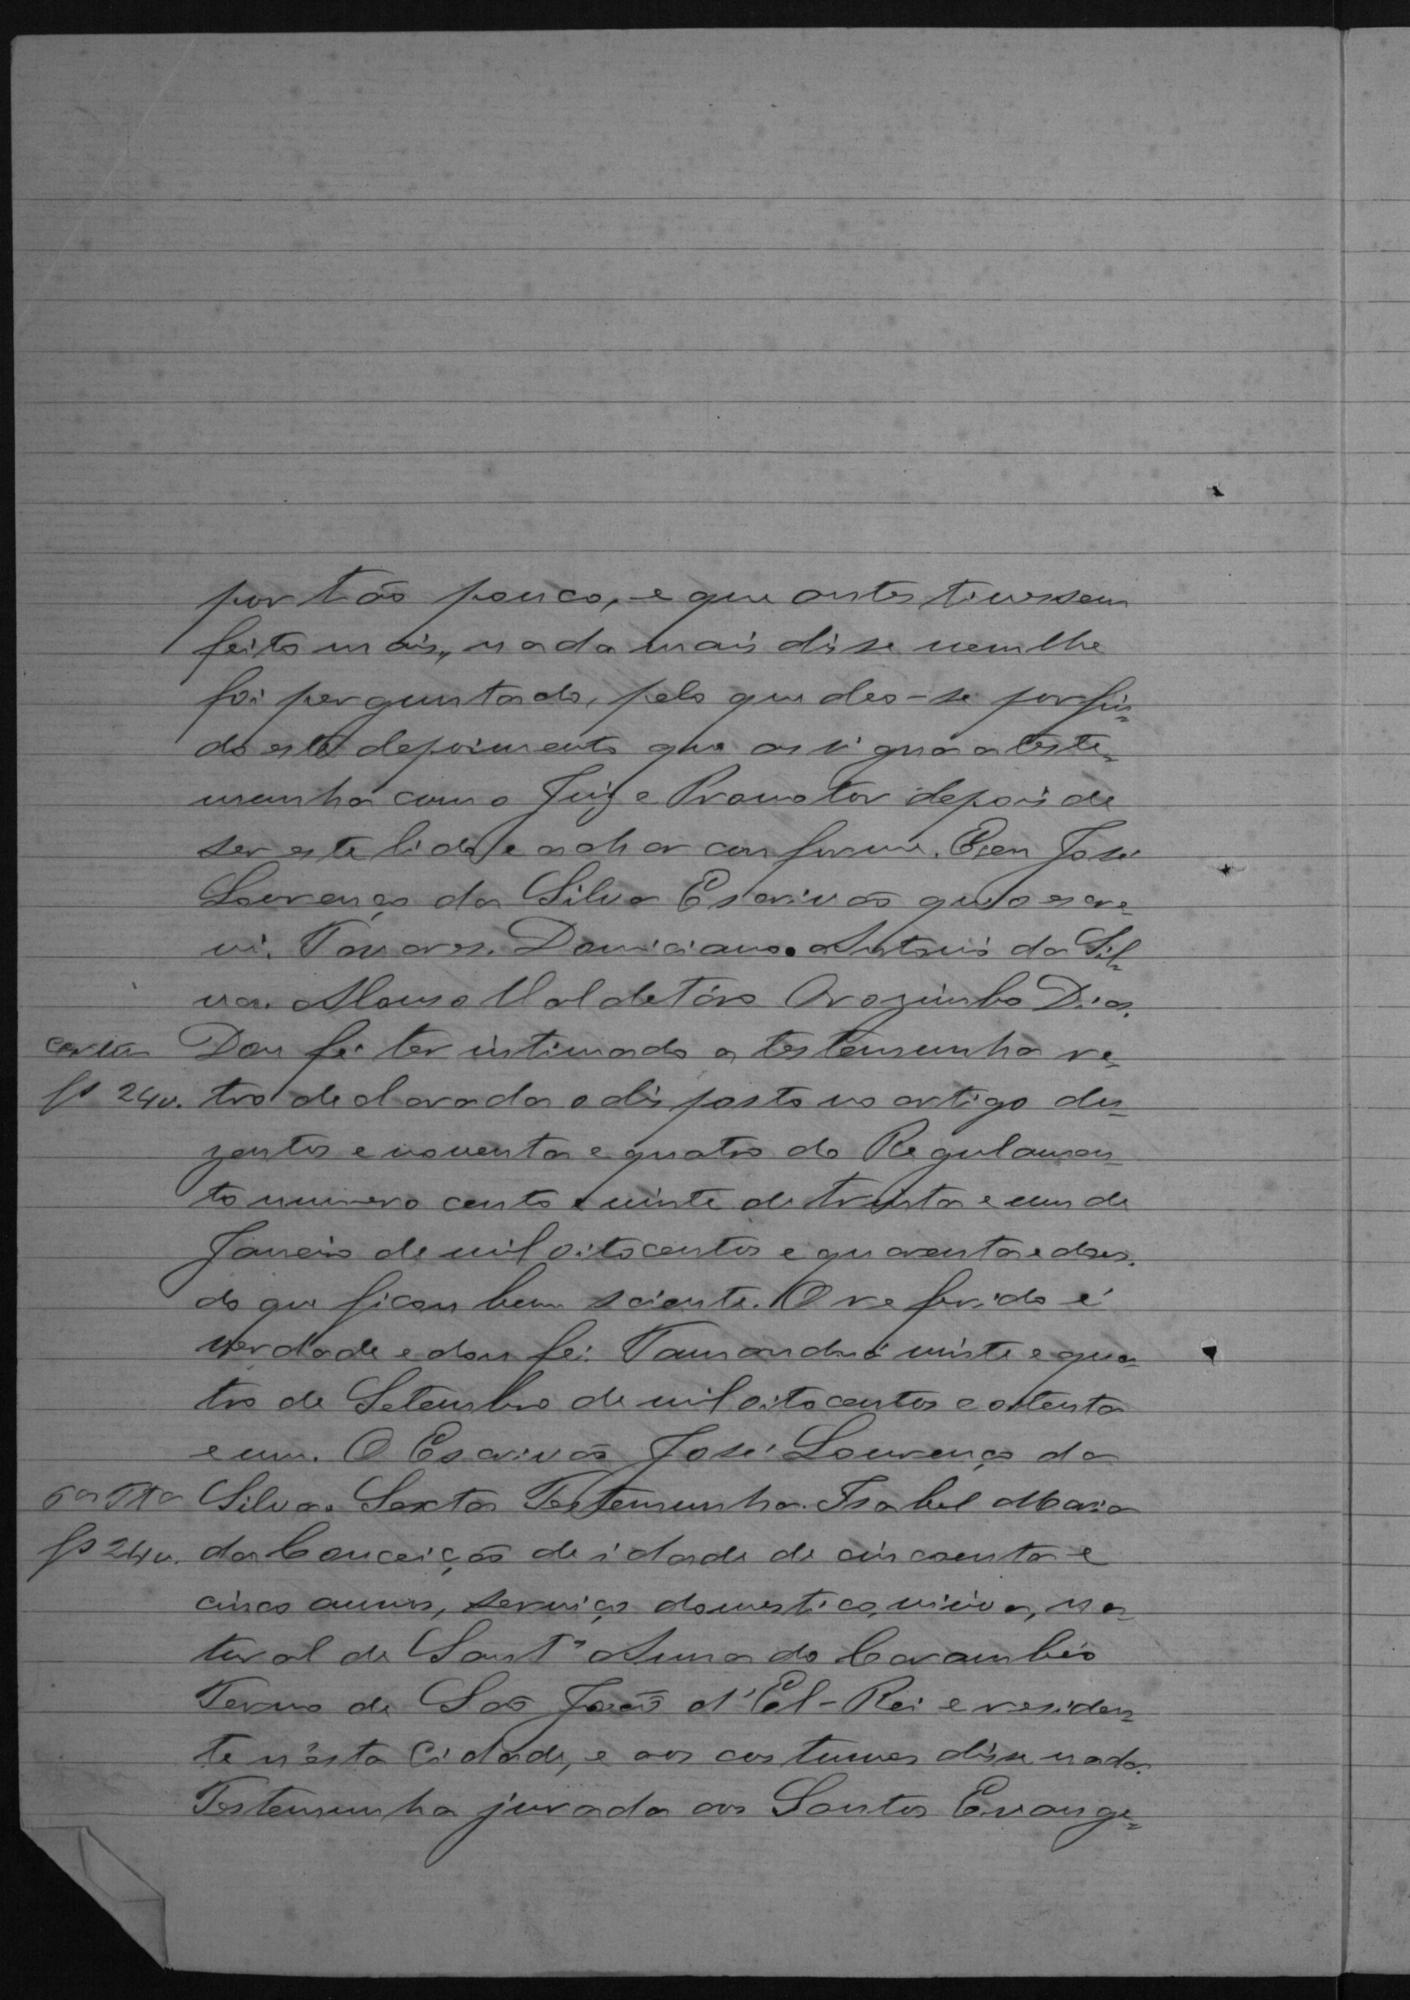 por tão pouco, e que antes tivessem
feito mais, nada mais disse nem lhe
foi perguntado, pelo que deo-se por fin=
do este depoimento que assigna a teste=
munha com o Juiz e Promotor depois de
ser este lido e achar conforme. E eu José
Lourenço da Silva Escrivão que o escre=
vi. Tavares. Domiciano Antonio da Sil=
va. Afonso Maldetáro Orozimbo Dias.
certão Dou fé ter intimado a testemunha re=
fs 24v. tro declarada o disposto no artigo du=
zentos e noventa e quatro do Regulamen=
to numero cento e vinte de trinta e um de
Janeiro de mil oitocentos e quarenta e dous.
do que ficou bem sciente. O referido é
verdade e dou fé. Tamanduá vinte e qua=
tro de Setembro de mil oitocentos e oitenta
e um. O Escrivão José Lourenço da
6a Tta Silva. Sexta Testemunha. Isabel Maria
fs 24v. da Conceição de idade de cincoenta e
cinco annos, serviço domestico, viuva, na=
tural de Sant'Anna do Carambéo
Termo de São João d'El-Rei e residen=
te n'esta Cidade, e aos costumes disse nada.
Testemunha jurada aos Santos Evange=